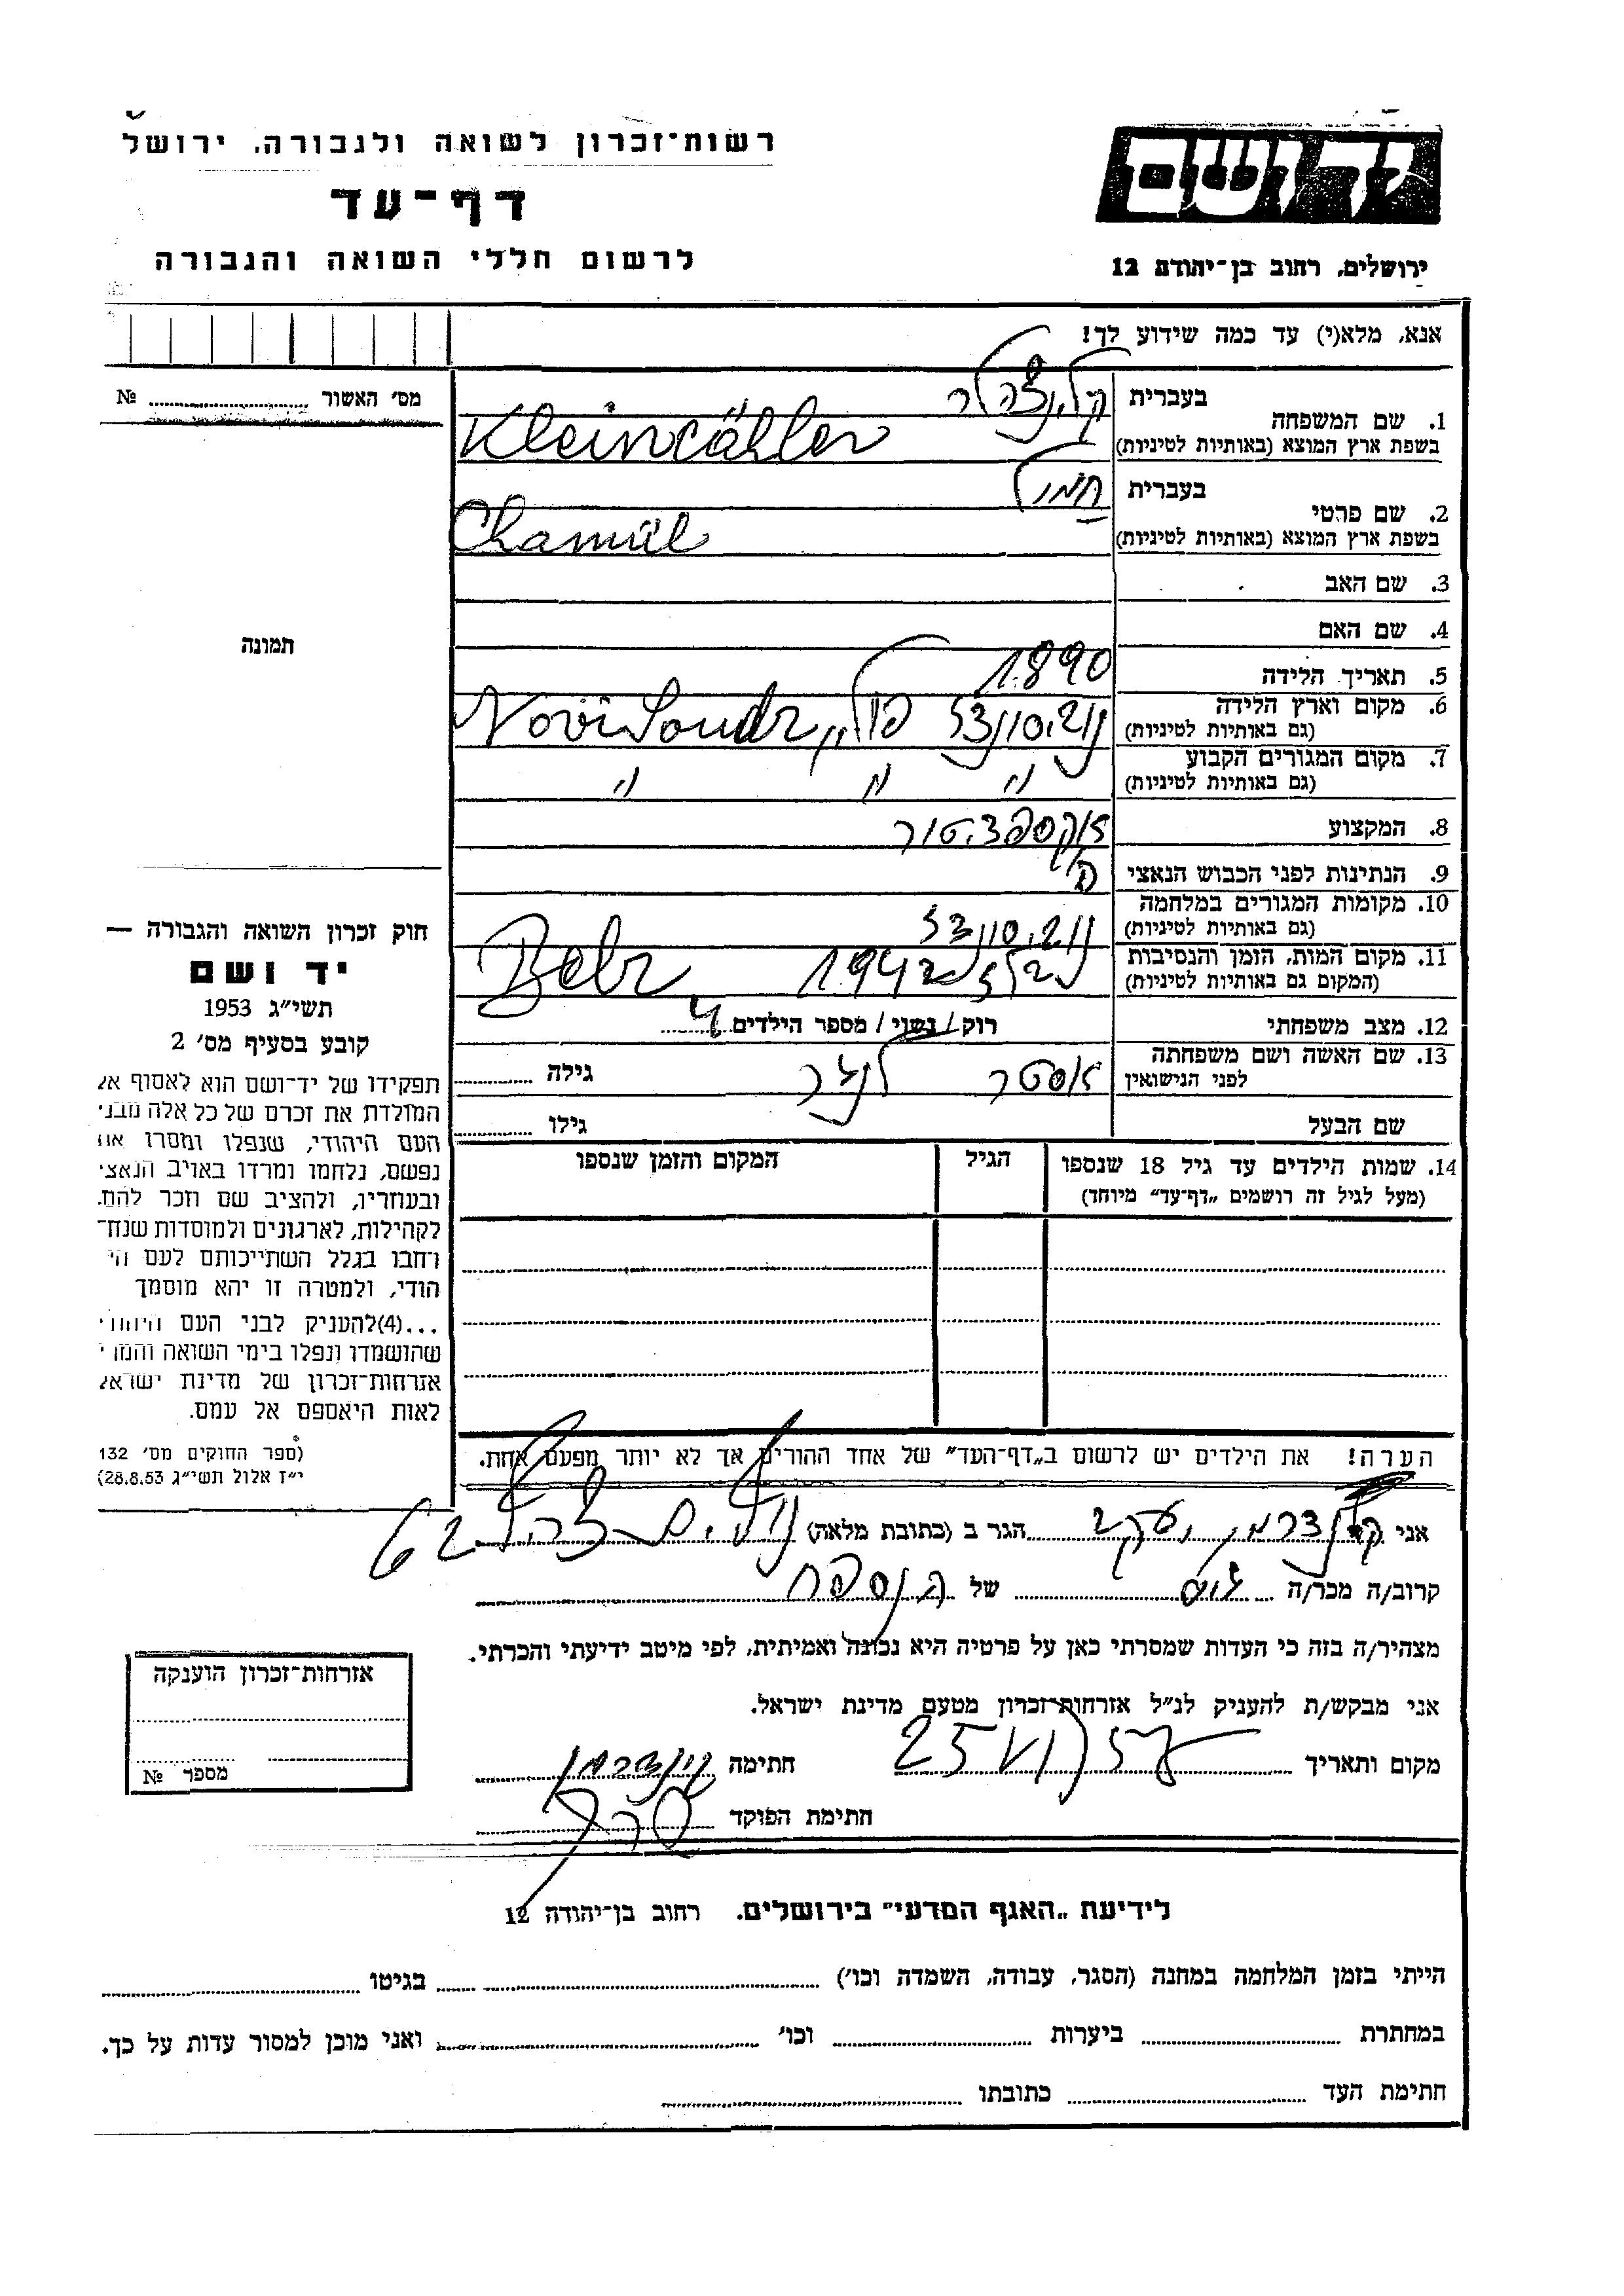 רשות־זכרון לשואה ולגבורה, ירושל
דף־עד
לרשום חללי השואה והגבורה
ידושם
ירושלים, רחוב בן־יהודה 12
אנא, מלא(י) עד כמה שידוע לך!
מס' האשור № 
1. שם המשפחה
בעברית קלינצהלר
בשפת ארץ המוצא (באותיות לטיניות) Kleincähler
2. שם פרטי
בעברית חמול
בשפת ארץ המוצא (באותיות לטיניות) Chamül
3. שם האב
4. שם האם
5. תאריך הלידה 1890
6. מקום וארץ הלידה
(גם באותיות לטיניות) פולין
7. מקום המגורים הקבוע
(גם באותיות לטיניות) " " "
8. המקצוע
9. הנתינות לפני הכבוש הנאצי
10. מקומות המגורים במלחמה
(גם באותיות לטיניות)
11. מקום המות, הזמן והנסיבות
(המקום גם באותיות לטיניות) בלזץ 1942 Belz
12. מצב משפחתי רוק / נשוי / מספר הילדים 4
13. שם האשה ושם משפחתה
לפני הנישואין אסטר גילה
שם הבעל גילו
14. שמות הילדים עד גיל 18 שנספו הגיל המקום והזמן שנספו
(מעל לגיל זה רושמים „דף־עד" מיוחד)
הערה! את הילדים יש לרשום ב„דף־העד" של אחד ההורים אך לא יותר מפעם אחת.
תמונה
חוק זכרון השואה והגבורה —
יד ושם
תשי"ג 1953
קובע בסעיף מס' 2
תפקידו של יד־ושם הוא לאסוף א
המולדת את זכרם של כל אלה מבני
העם היהודי, שנפלו ומסרו את
נפשם, נלחמו ומרדו באויב הנאצי
ובעוזריו, ולהציב שם וזכר להם,
לקהילות, לארגונים ולמוסדות שנח־
רחבו בגלל השתייכותם לעם הי
הודי, ולמטרה זו יהא מוסמך
...(4)להעניק לבני העם היהודי
שהושמדו ונפלו בימי השואה והמרי
אזרחות־זכרון של מדינת ישראל
לאות היאספם אל עמם.
(ספר החוקים מס' 132
י"ז אלול תשי"ג 28.8.53)
אני יעקב הגר ב (כתובת מלאה) 62
קרוב/ה מכר/ה של הנספה
מצהיר/ה בזה כי העדות שמסרתי כאן על פרטיה היא נכונה ואמיתית, לפי מיטב ידיעתי והכרתי.
אני מבקש/ת להעניק לנ"ל אזרחות־זכרון מטעם מדינת ישראל.
מקום ותאריך 25 VI 57 חתימה
חתימת הפוקד
אזרחות־זכרון הוענקה
מספר №
לידיעת „האגף המדעי" בירושלים. רחוב בן־יהודה 12
הייתי בזמן המלחמה במחנה (הסגר, עבודה, השמדה וכו') בגיטו
במחתרת ביערות וכו' ואני מוכן למסור עדות על כך.
חתימת העד כתובתו